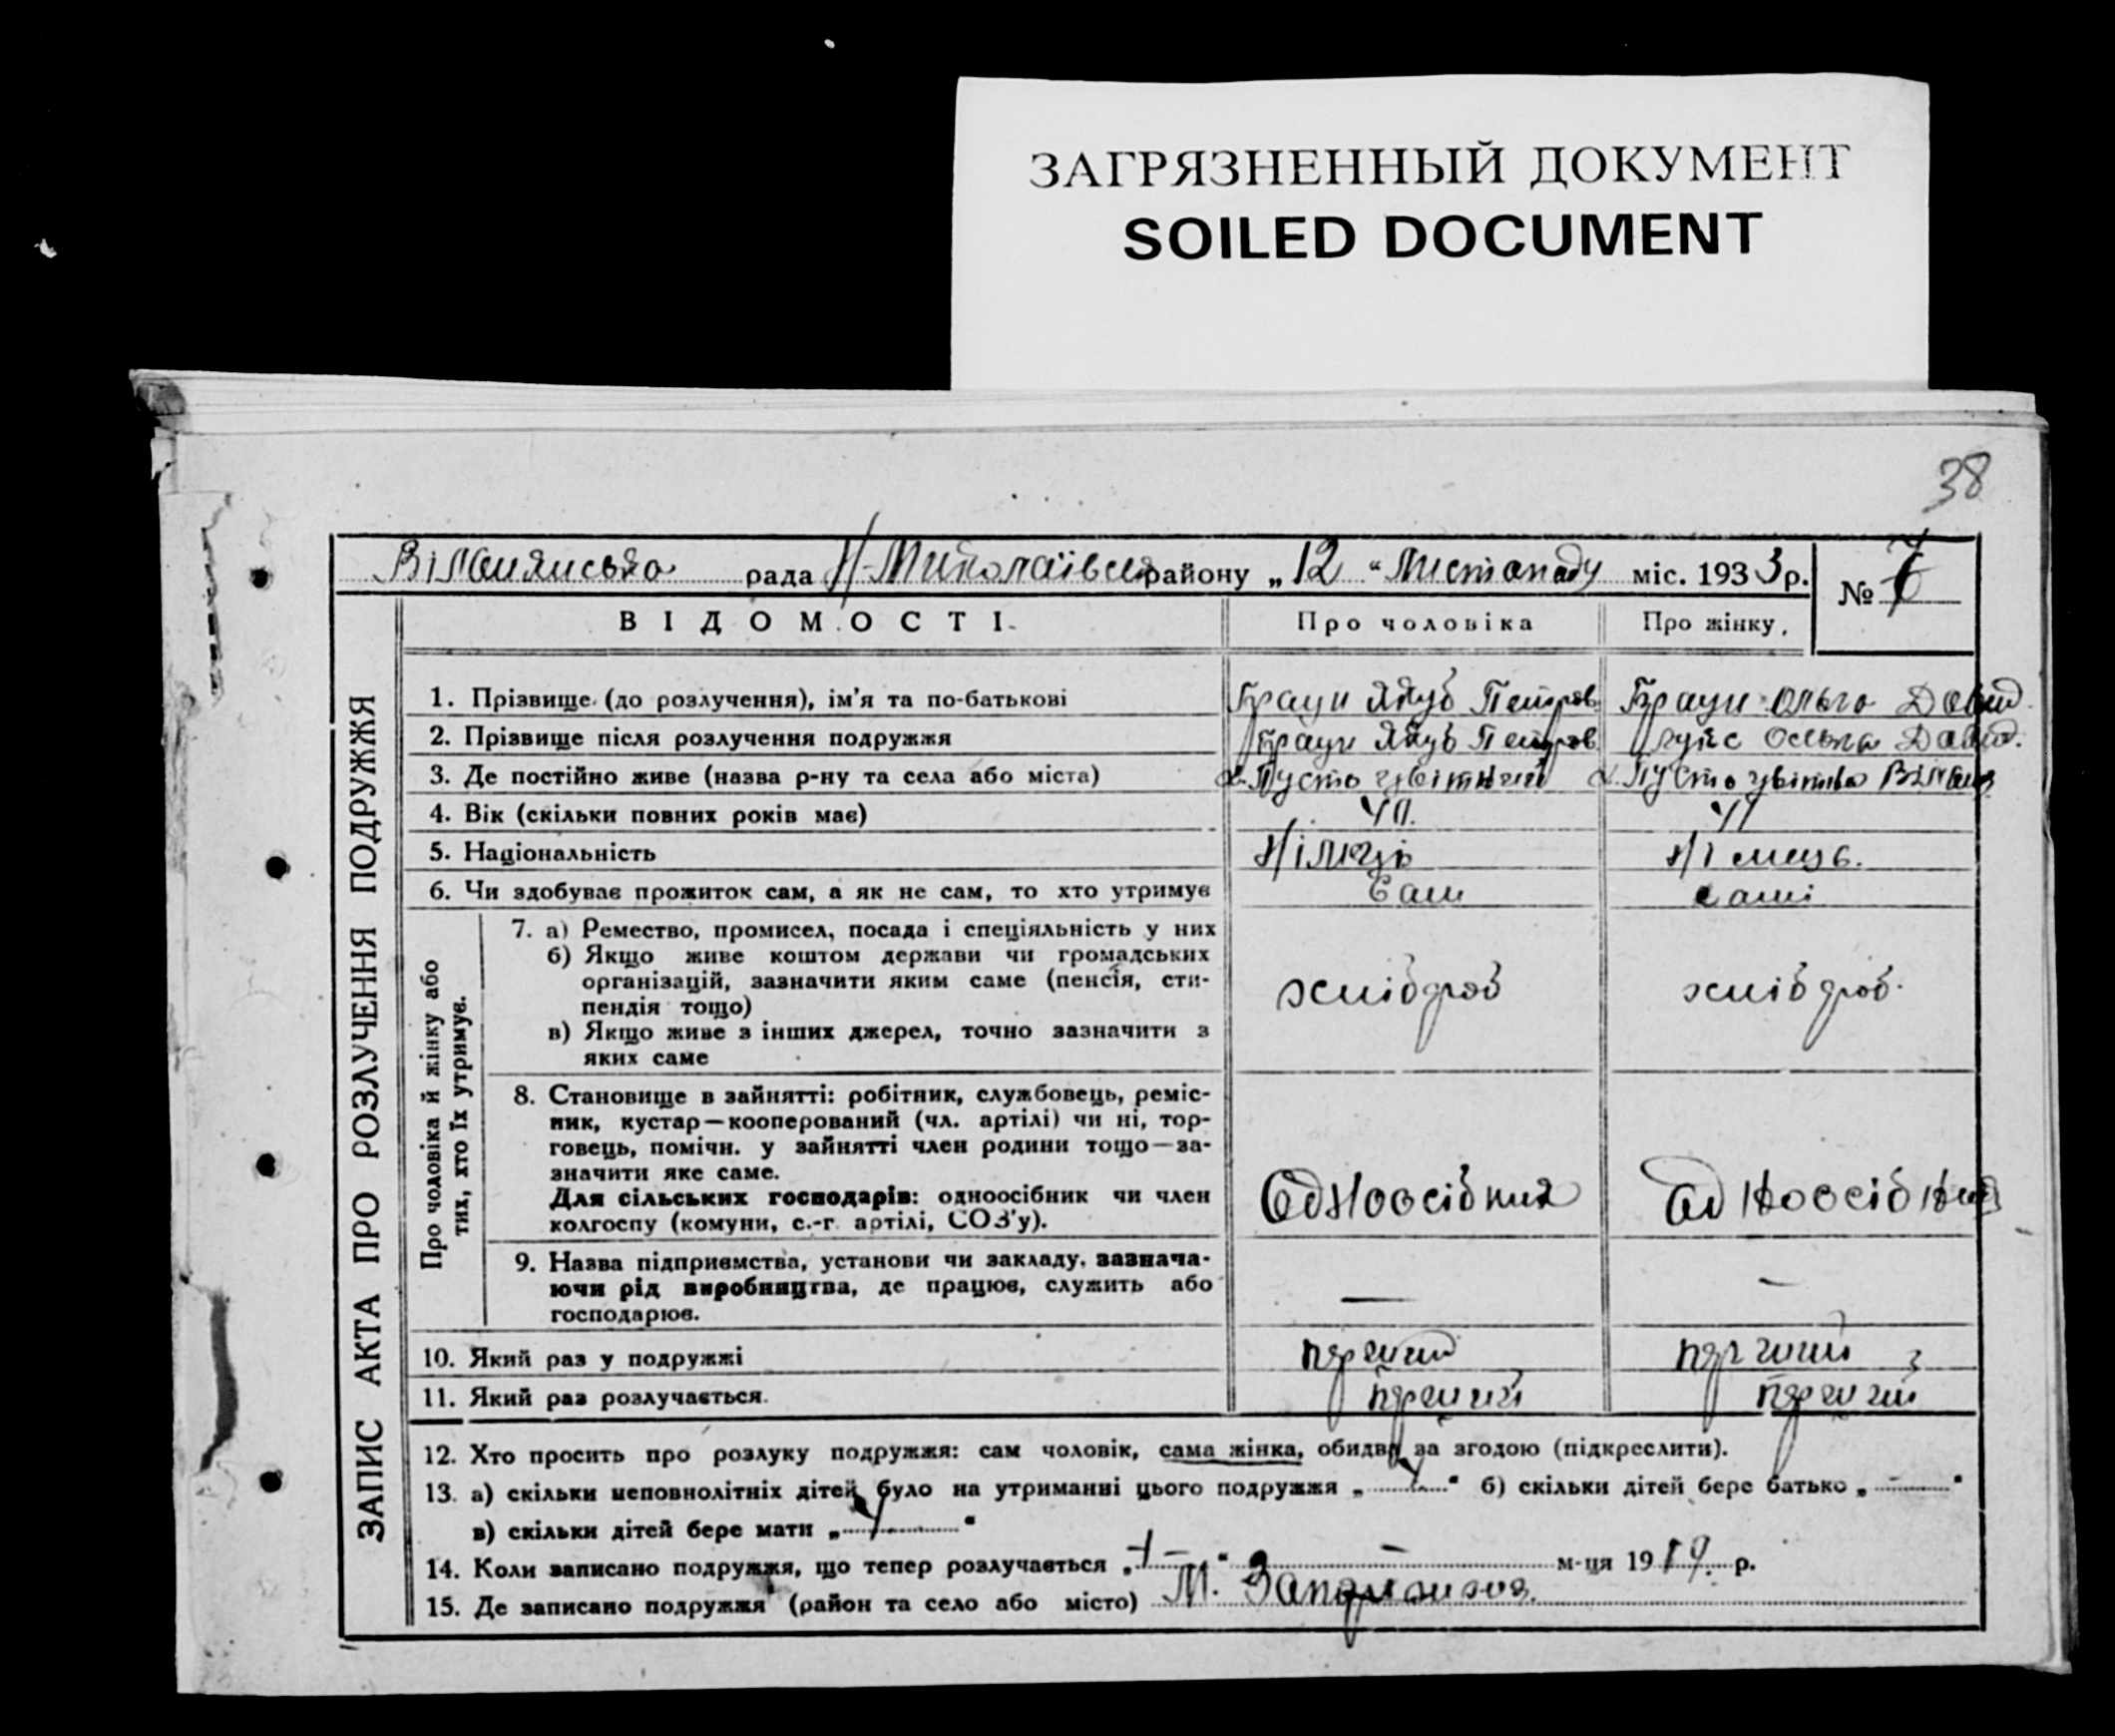 ЗАГРЯЗНЕННЫЙ ДОКУМЕНТ
SOILED DOCUMENT
38
рада Н-Миколаївськ району „12“ Листопаду міс. 1933 р.
№ 7
ЗАПИС АКТА ПРО РОЗЛУЧЕННЯ ПОДРУЖЖЯ
ВІДОМОСТІ Про чоловіка Про жінку
1. Прізвище (до розлучення), ім'я та по-батькові Браун Якуб Петров. Браун Ольга Давид.
2. Прізвище після розлучення подружжя Браун Якуб Петров. Ольга Давид.
3. Де постійно живе (назва р-ну та села або міста)
4. Вік (скільки повних років має)
5. Національність Німець Німець.
6. Чи здобуває прожиток сам, а як не сам, то хто утримує Сам сами
Про чоловіка й жінку або тих, хто їх утримує.
7. а) Ремество, промисел, посада і спеціяльність у них
б) Якщо живе коштом держави чи громадських
організацій, зазначити яким саме (пенсія, сти-
пендія тощо)
хлібороб хлібороб.
в) Якщо живе з інших джерел, точно зазначити з
яких саме
8. Становище в зайнятті: робітник, службовець, реміс-
ник, кустар—кооперований (чл. артілі) чи ні, тор-
говець, помічн. у зайнятті член родини тощо—за-
значити яке саме.
Для сільських господарів: одноосібник чи член
колгоспу (комуни, с.-г. артілі, СОЗ'у).
Одноосібник Одноосібник
9. Назва підприємства, установи чи закладу, зазнача-
ючи рід виробництва, де працює, служить або
господарює.
— —
10. Який раз у подружжі перший перший
11. Який раз розлучається. перший перший
12. Хто просить про розлуку подружжя: сам чоловік, сама жінка, обидва за згодою (підкреслити).
13. а) скільки неповнолітніх дітей було на утриманні цього подружжя „ “ б) скільки дітей бере батько „—“
в) скільки дітей бере мати „ “
14. Коли записано подружжя, що тепер розлучається „ “ — м-ця 1919 р.
15. Де записано подружжя (район та село або місто) М. Запоріжжя.